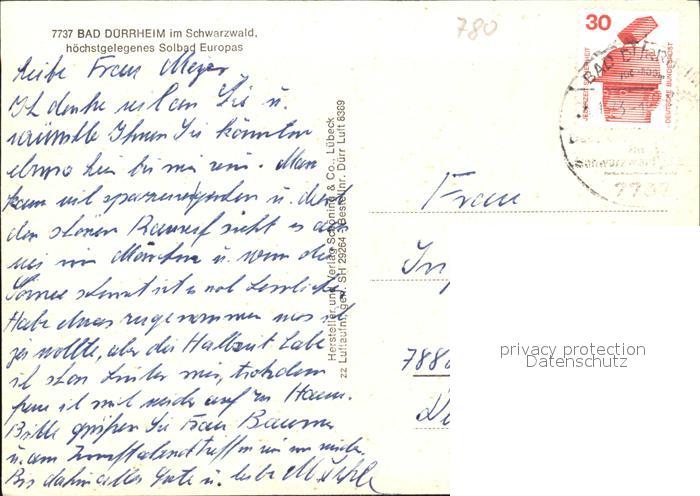 7737 BAD DÜRRHEIM im Schwarzwald,
höchstgelegenes Solbad Europas
Liebe Frau Meyer
Ich denke viel an Sie u.
wünschte Ihnen Sie könnten
ebenso hier bei mir sein. Man
kann viel spazierengehen u. durch
den schönen Rauhreif sieht es aus
wie im Märchen u. wenn die
Sonne scheint ist es noch herrlicher
Habe etwas zugenommen was ich
ja wollte, aber die Halbzeit habe
ich schon hinter mir, trotzdem
freue ich mich wieder auf zu Hause.
Bitte grüßen Sie Frau Baumann
u. am treffen wir uns wieder.
Bis dahin alles Gute u. liebe
Hersteller und Verlag Schöning & Co., Lübeck
zz Luftaufn. gen. SH 29264 3 Bestellnr. Dürr Luft 8369
780
30
JEDERZEIT SICHERHEIT
DEUTSCHE BUNDESPOST
BAD DÜRRHEIM
Schwarzwald
7737
Frau
788
privacy protection
Datenschutz